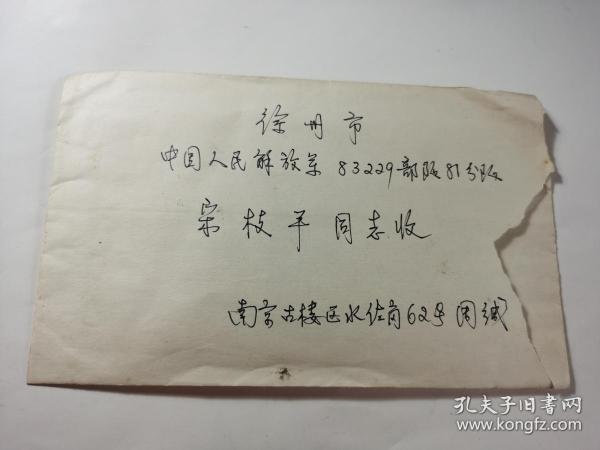 徐州市
中国人民解放军83229部队81分队
宋枝平同志收
南京古楼区水佐岗62号 周缄
孔夫子旧书网
www.kongfz.com